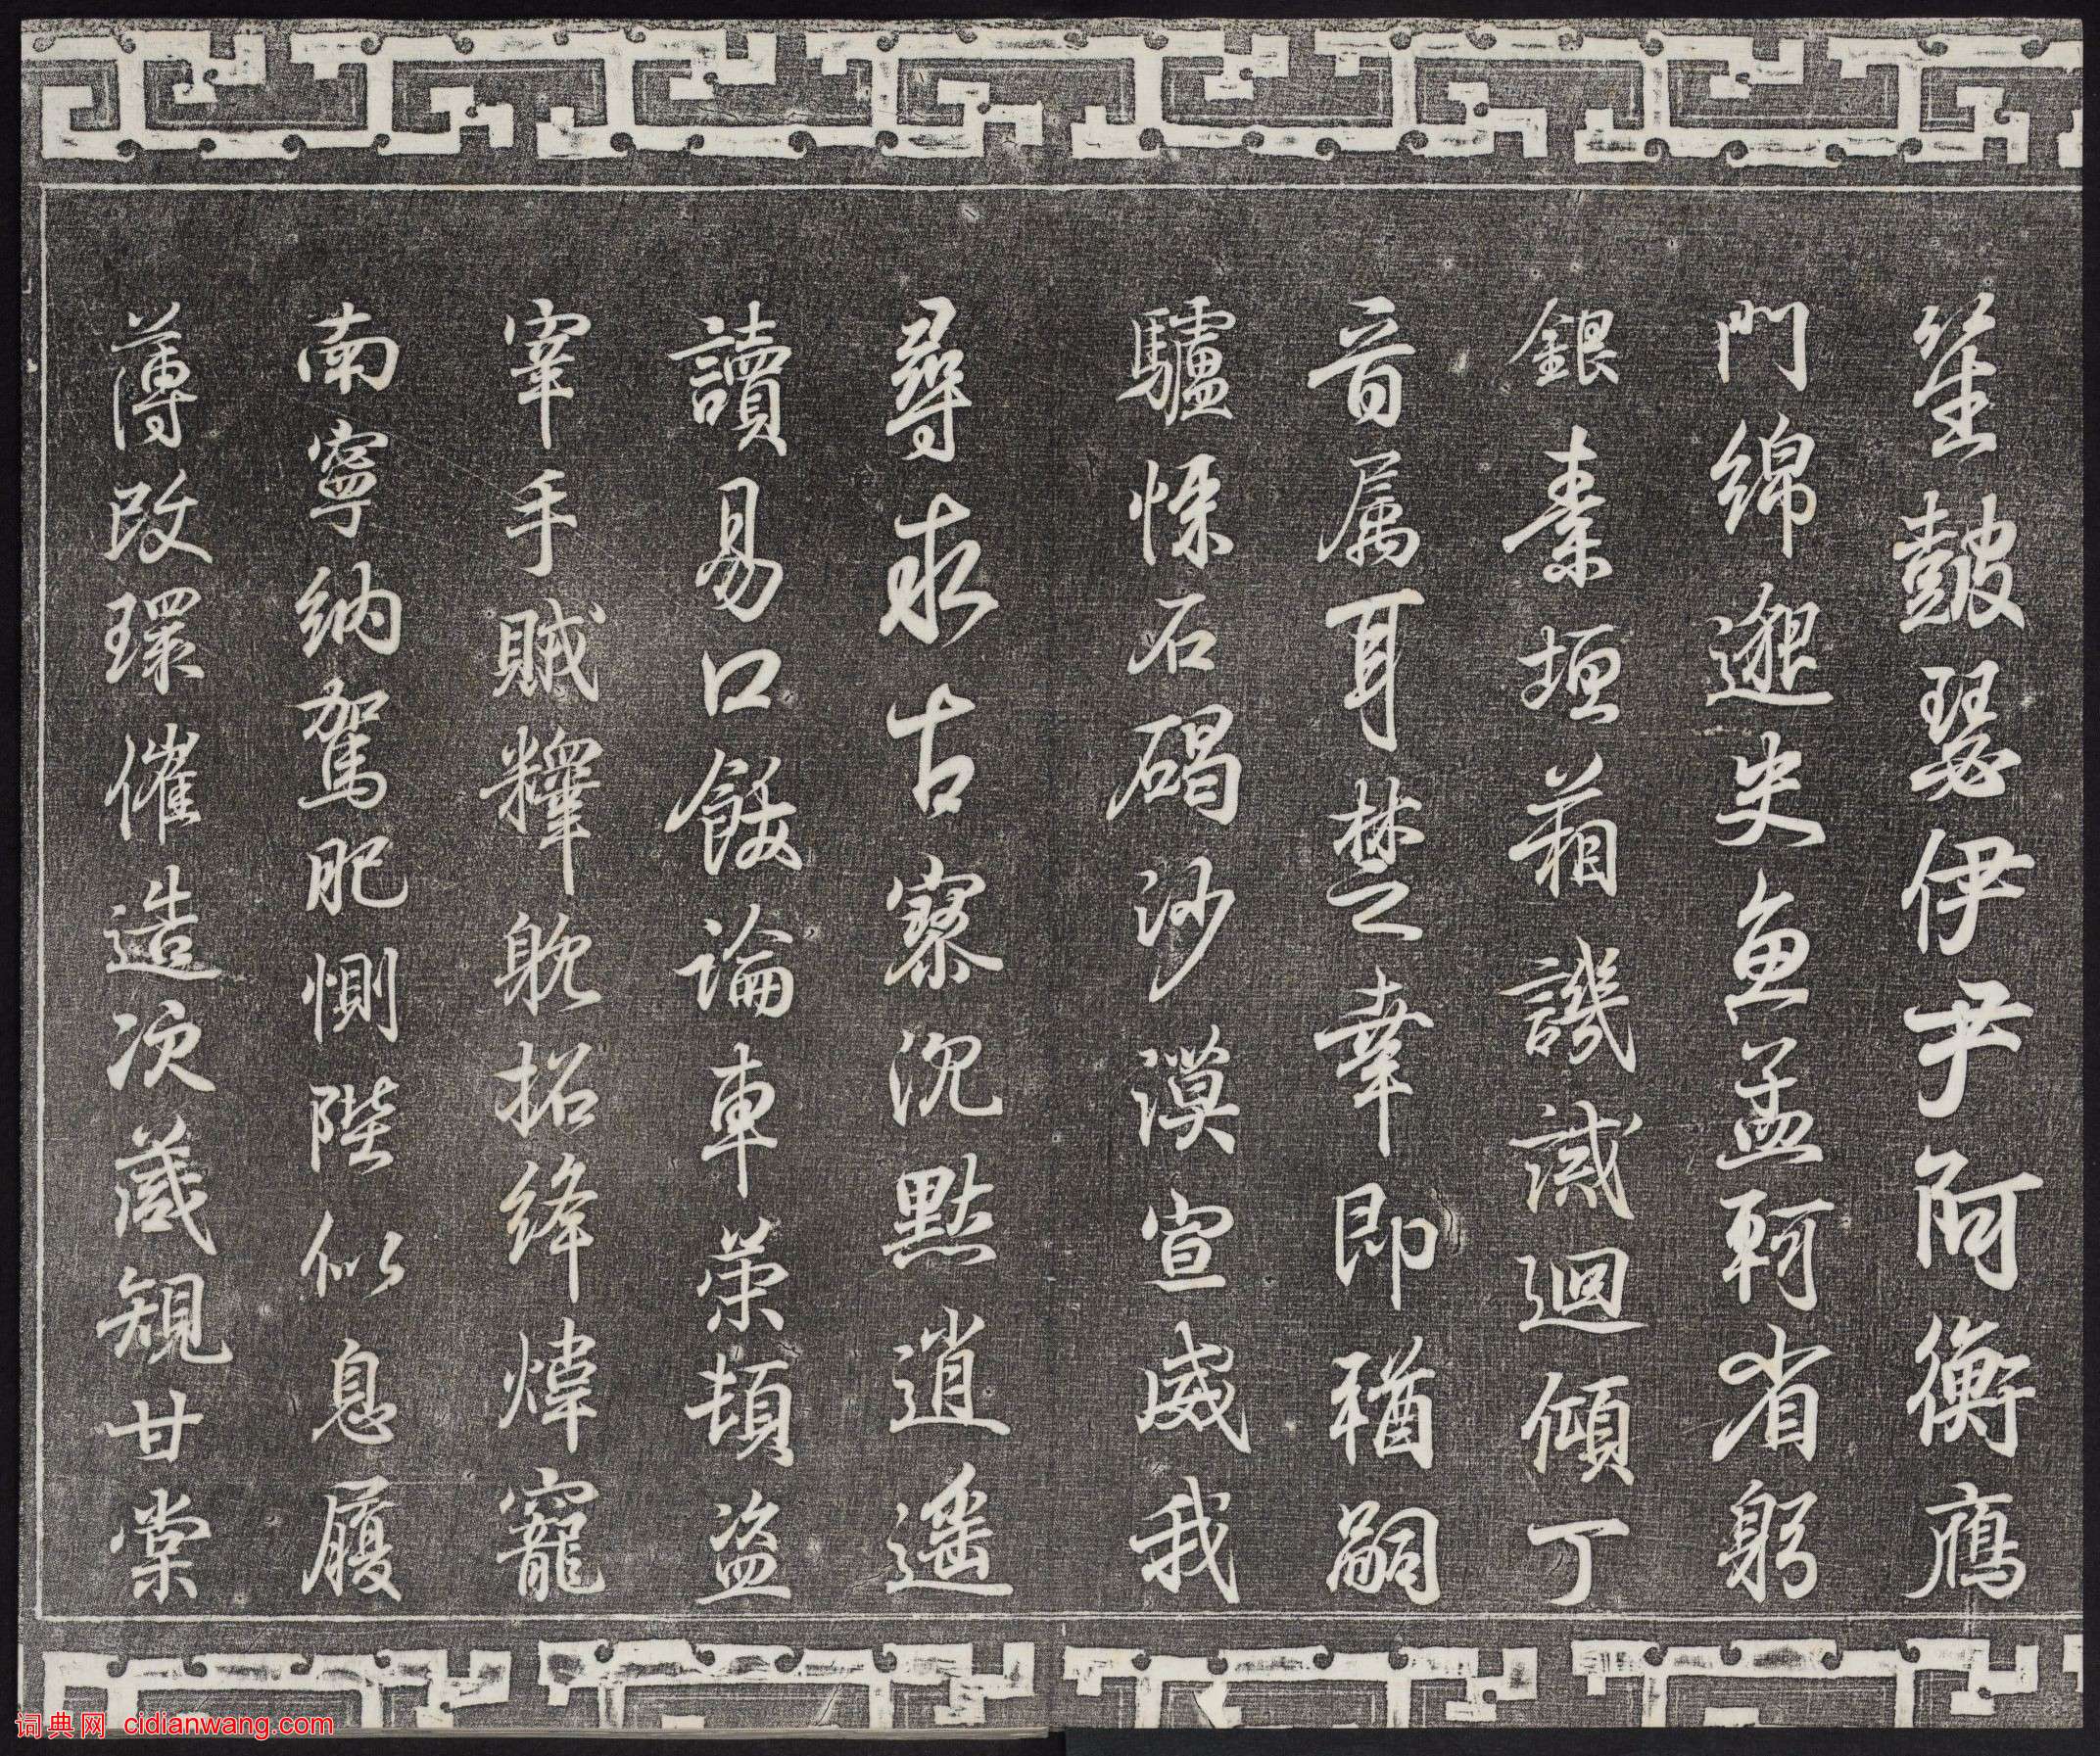 笙鼓瑟伊尹阿衡鴈
門綿邈史魚孟軻省躬
銀素垣葙譏誡迴傾丁
音属耳楚幸即猶嗣
驢騾石碣沙漠宣威我
尋求古寮沉默逍遥
讀易口飯論車策頓盜
宰手賊糧躭招絳煒寵
南寧納駕肥惻陛似息履
薄改環催造次藏規甘棠
词典网 cidianwang.com